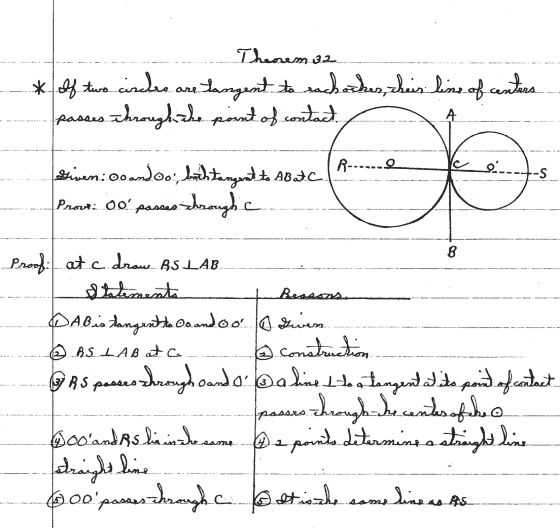 Theorem 32
* If two circles are tangent to each other, their line of centers
passes through the point of contact.
A
R O C O' S
B
Given: ⊙O and ⊙O', both tangent to AB at C
Prove: OO' passes through C
Proof: at C draw RS ⊥ AB
Statements Reasons
① AB is tangent to ⊙O and ⊙O' ① Given
② RS ⊥ AB at C. ② Construction
③ RS passes through O and O' ③ a line ⊥ to a tangent at its point of contact
passes through the center of the ⊙
④ OO' and RS lie in the same ④ 2 points determine a straight line
straight line
⑤ OO' passes through C ⑤ It is the same line as RS